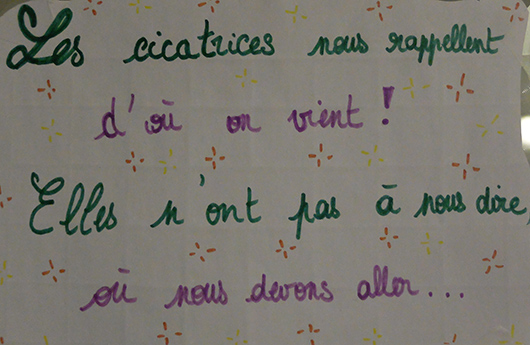 Les cicatrices nous rappellent
d'où on vient !
Elles n'ont pas à nous dire,
où nous devons aller...